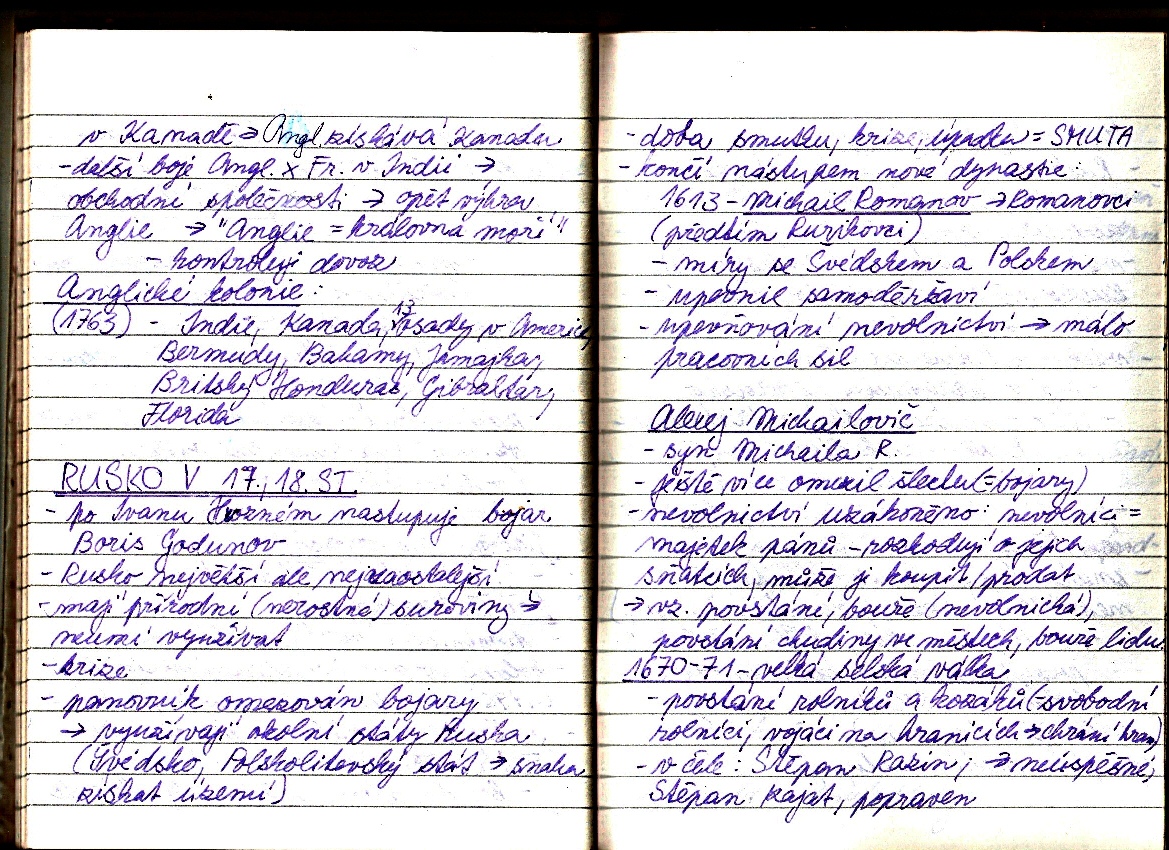 v Kanadě ⇒ Angl. získává Kanadu
- další boje Angl. x Fr. v Indii →
obchodní společnosti → opět výhra
Anglie → "Anglie = královna moří"
- kontrolují dovoz
Anglické kolonie:
(1763) - Indie, Kanada, 13 osady v Americe,
Bermudy, Bahamy, Jamajka,
Britský Honduras, Gibraltar,
Florida
RUSKO V 17., 18. ST.
- po Ivanu Hrozném nastupuje bojar
Boris Godunov
- Rusko největší ale nejzaostalejší
- mají přírodní (nerostné) suroviny →
neumí využívat
- krize
- panovník omezován bojary
→ využívají okolní státy Ruska
(Švédsko, Polskolitevský stát → snaha
získat území)
- doba smutku, krize, úpadku = SMUTA
- končí nástupem nové dynastie:
1613 - Michail Romanov → Romanovci
(předtím Rurikovci)
- míry se Švédskem a Polskem
- upevnil samoděržaví
- upevňování nevolnictví → málo
pracovních sil
Alexej Michailovič
- syn Michaila R.
- ještě více omezil šlechtu (=bojary)
- nevolnictví uzákoněno: nevolníci =
majetek pánů - rozhodují o jejich
sňatcích, může je koupit/prodat
→ vz. povstání, bouře (nevolnická),
povstání chudiny ve městech, bouře lidu
1670-71 - velká selská válka
- povstání rolníků a kozáků (=svobodní
rolníci, vojáci na hranicích → chrání hran)
- v čele: Stěpan Razin, → neúspěšné,
Stěpan zajat, popraven